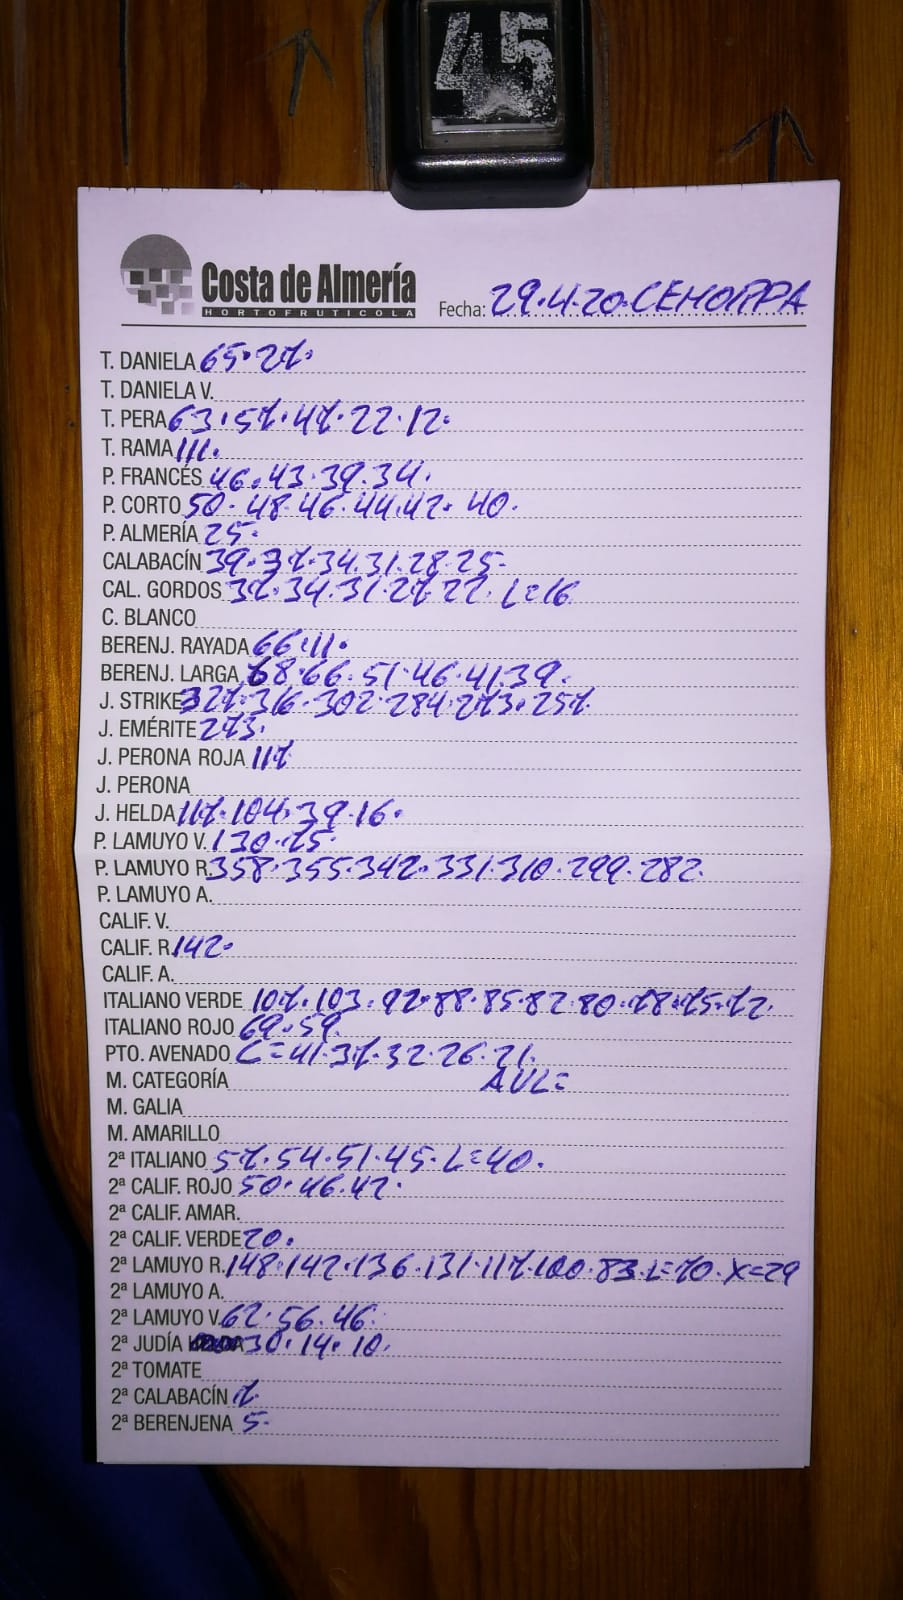 45
Costa de Almería
HORTOFRUTICOLA
Fecha: 29.4.20.CEHORPA
T. DANIELA 65.27.
T. DANIELA V.
T. PERA 63.57.47.22.12.
T. RAMA 111.
P. FRANCÉS 46.43.39.34.
P. CORTO 50.48.46.44.42.40.
P. ALMERÍA 25.
CALABACÍN 39.37.34.31.28.25.
CAL. GORDOS 37.34.31.27.22. L=16
C. BLANCO
BERENJ. RAYADA 66.11.
BERENJ. LARGA 68.66.51.46.41.39.
J. STRIKE 327.316.302.284.273.257.
J. EMÉRITE 273.
J. PERONA ROJA 117
J. PERONA
J. HELDA 117.104.39.16.
P. LAMUYO V. 130.75.
P. LAMUYO R. 358.355.342.331.310.299.282.
P. LAMUYO A.
CALIF. V.
CALIF. R. 142.
CALIF. A.
ITALIANO VERDE 107.103.92.88.85.82.80.78.75.72.
ITALIANO ROJO 69.59.
PTO. AVENADO C=41.37.32.26.21.
M. CATEGORÍA AVL=
M. GALIA
M. AMARILLO
2ª ITALIANO 57.54.51.45.L=40.
2ª CALIF. ROJO 50.46.42.
2ª CALIF. AMAR.
2ª CALIF. VERDE 20.
2ª LAMUYO R. 148.142.136.131.117.100.83.L=70.X=29
2ª LAMUYO A.
2ª LAMUYO V. 62.56.46.
2ª JUDÍA 30.14.10.
2ª TOMATE
2ª CALABACÍN 7.
2ª BERENJENA 5.